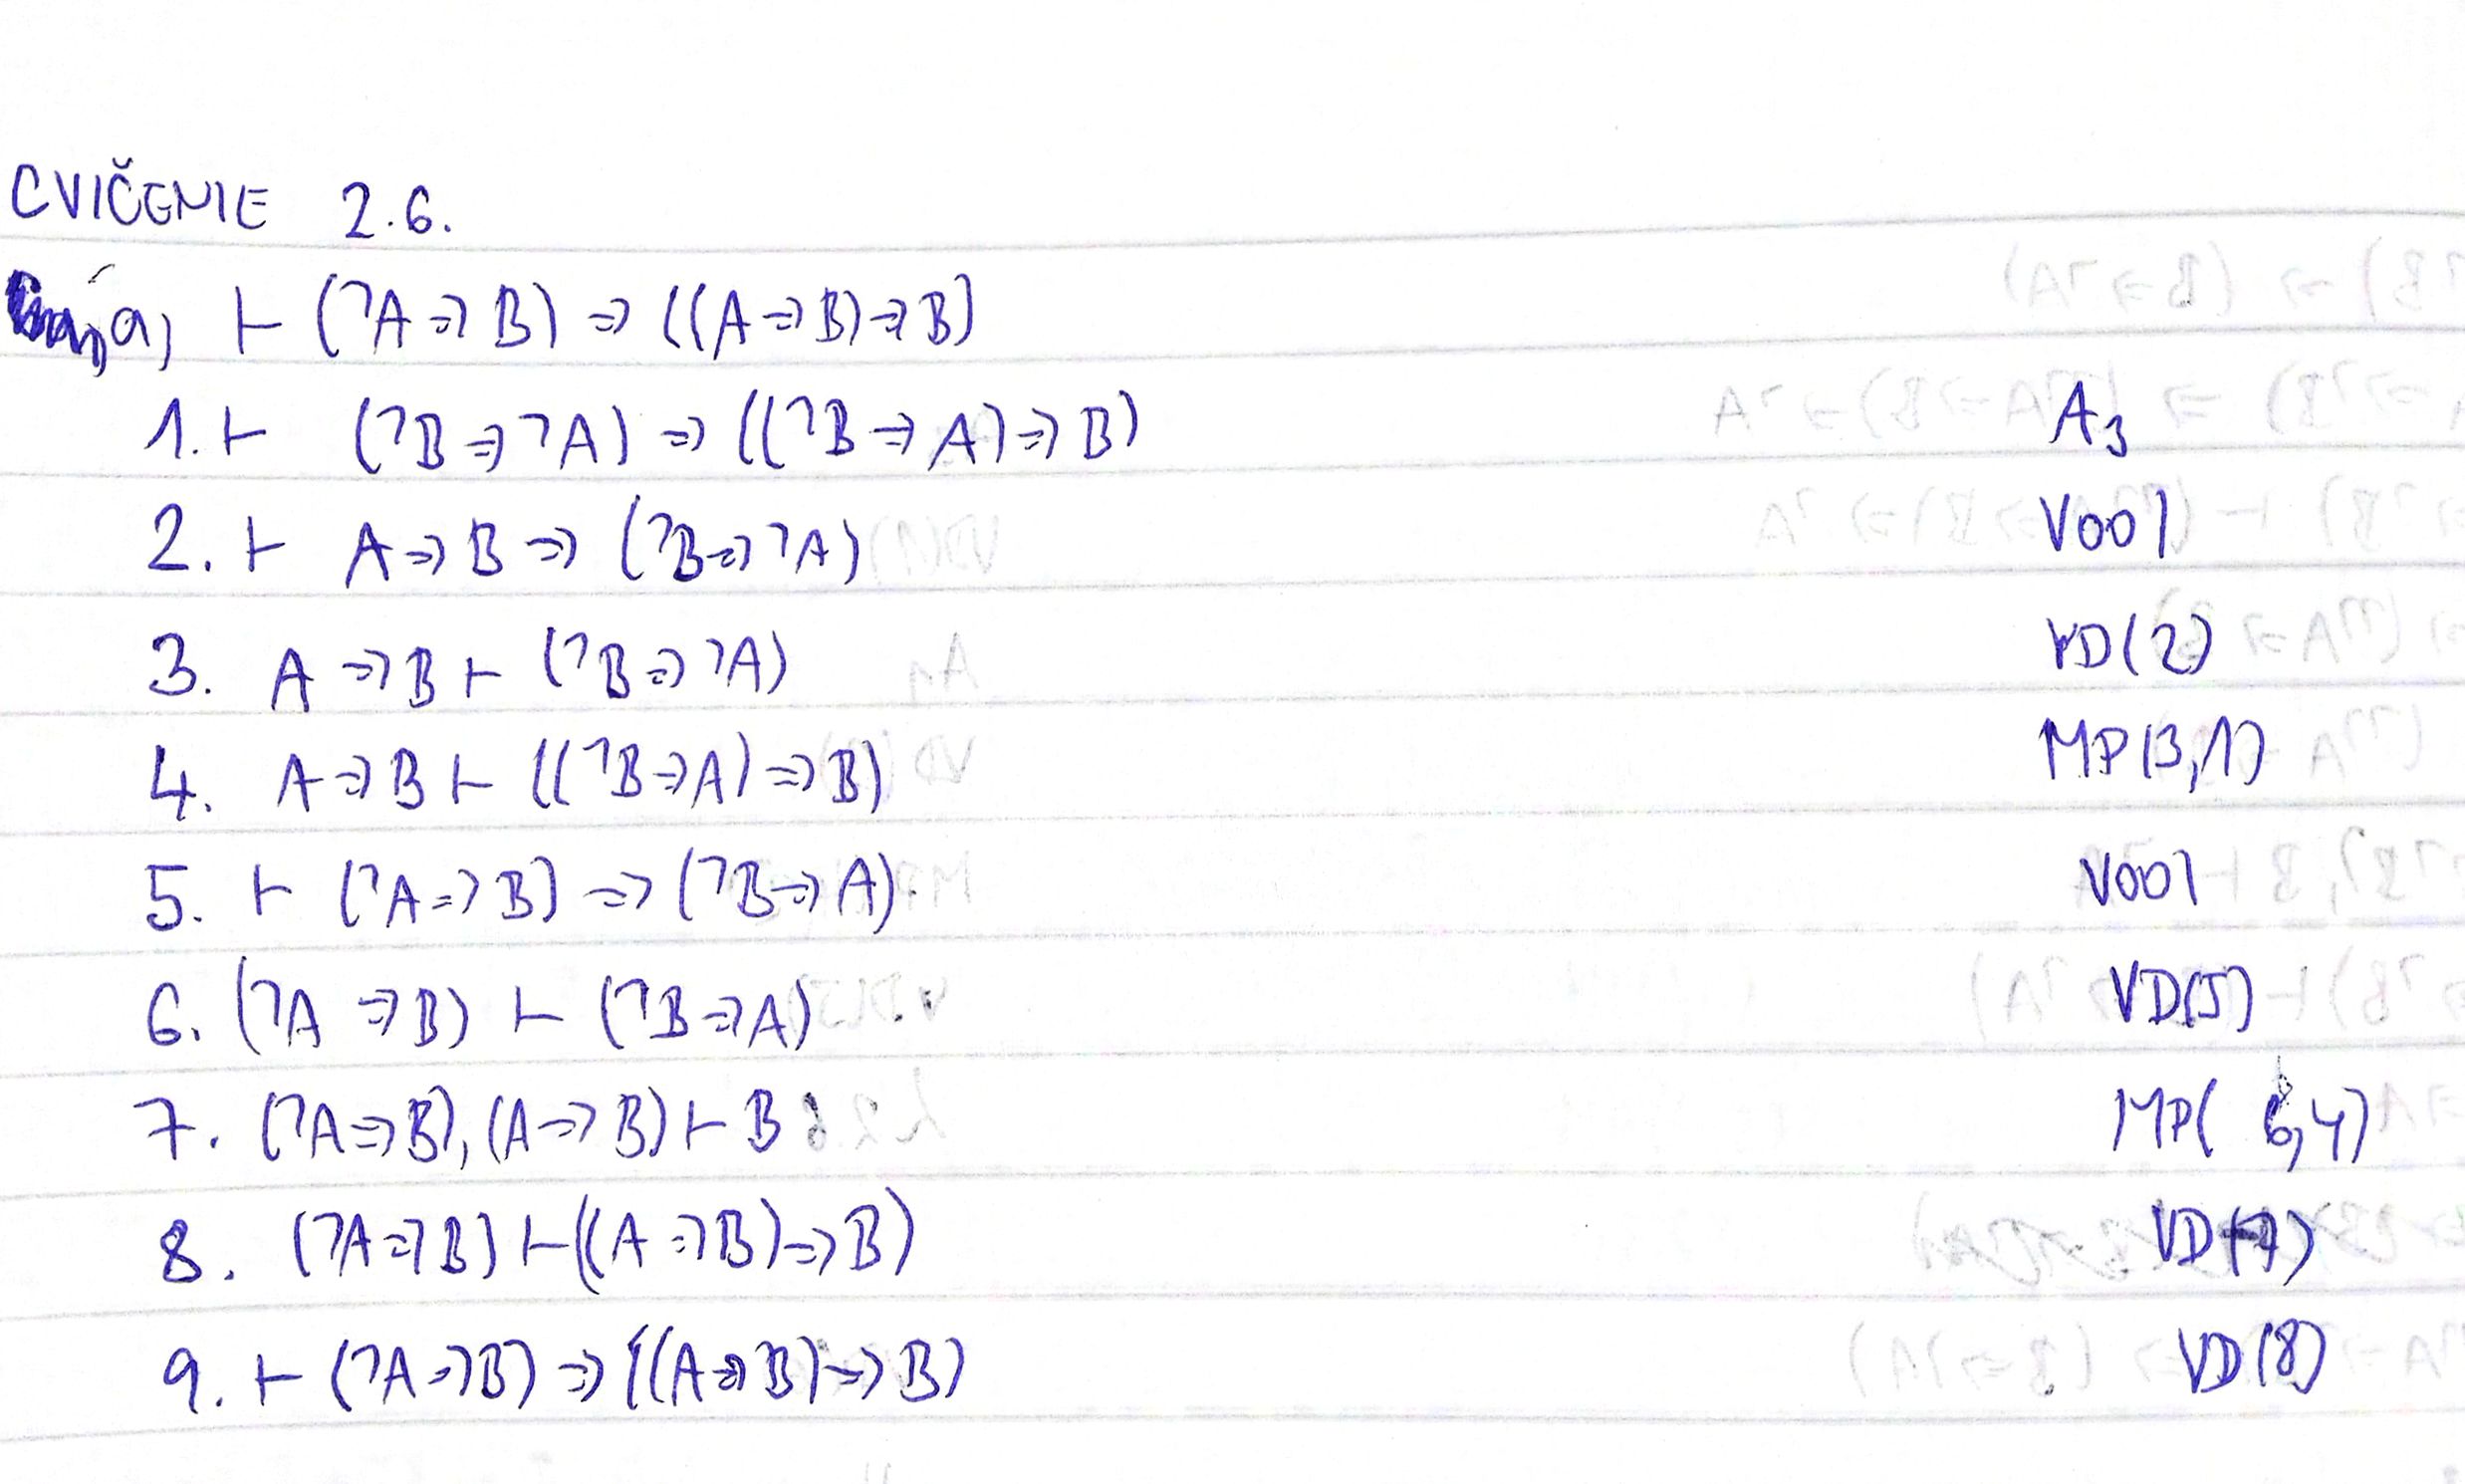 CVIČENIE 2.6.
a) ⊢ (¬A ⇒ B) ⇒ ((A ⇒ B) ⇒ B)
1. ⊢ (¬B ⇒ ¬A) ⇒ ((¬B ⇒ A) ⇒ B) A3
2. ⊢ A ⇒ B ⇒ (¬B ⇒ ¬A) VOO1
3. A ⇒ B ⊢ (¬B ⇒ ¬A) VD(2)
4. A ⇒ B ⊢ ((¬B ⇒ A) ⇒ B) MP(3,1)
5. ⊢ (¬A ⇒ B) ⇒ (¬B ⇒ A) VOO1
6. (¬A ⇒ B) ⊢ (¬B ⇒ A) VD(5)
7. (¬A ⇒ B), (A ⇒ B) ⊢ B MP(6,4)
8. (¬A ⇒ B) ⊢ ((A ⇒ B) ⇒ B) VD(7)
9. ⊢ (¬A ⇒ B) ⇒ ((A ⇒ B) ⇒ B) VD(8)